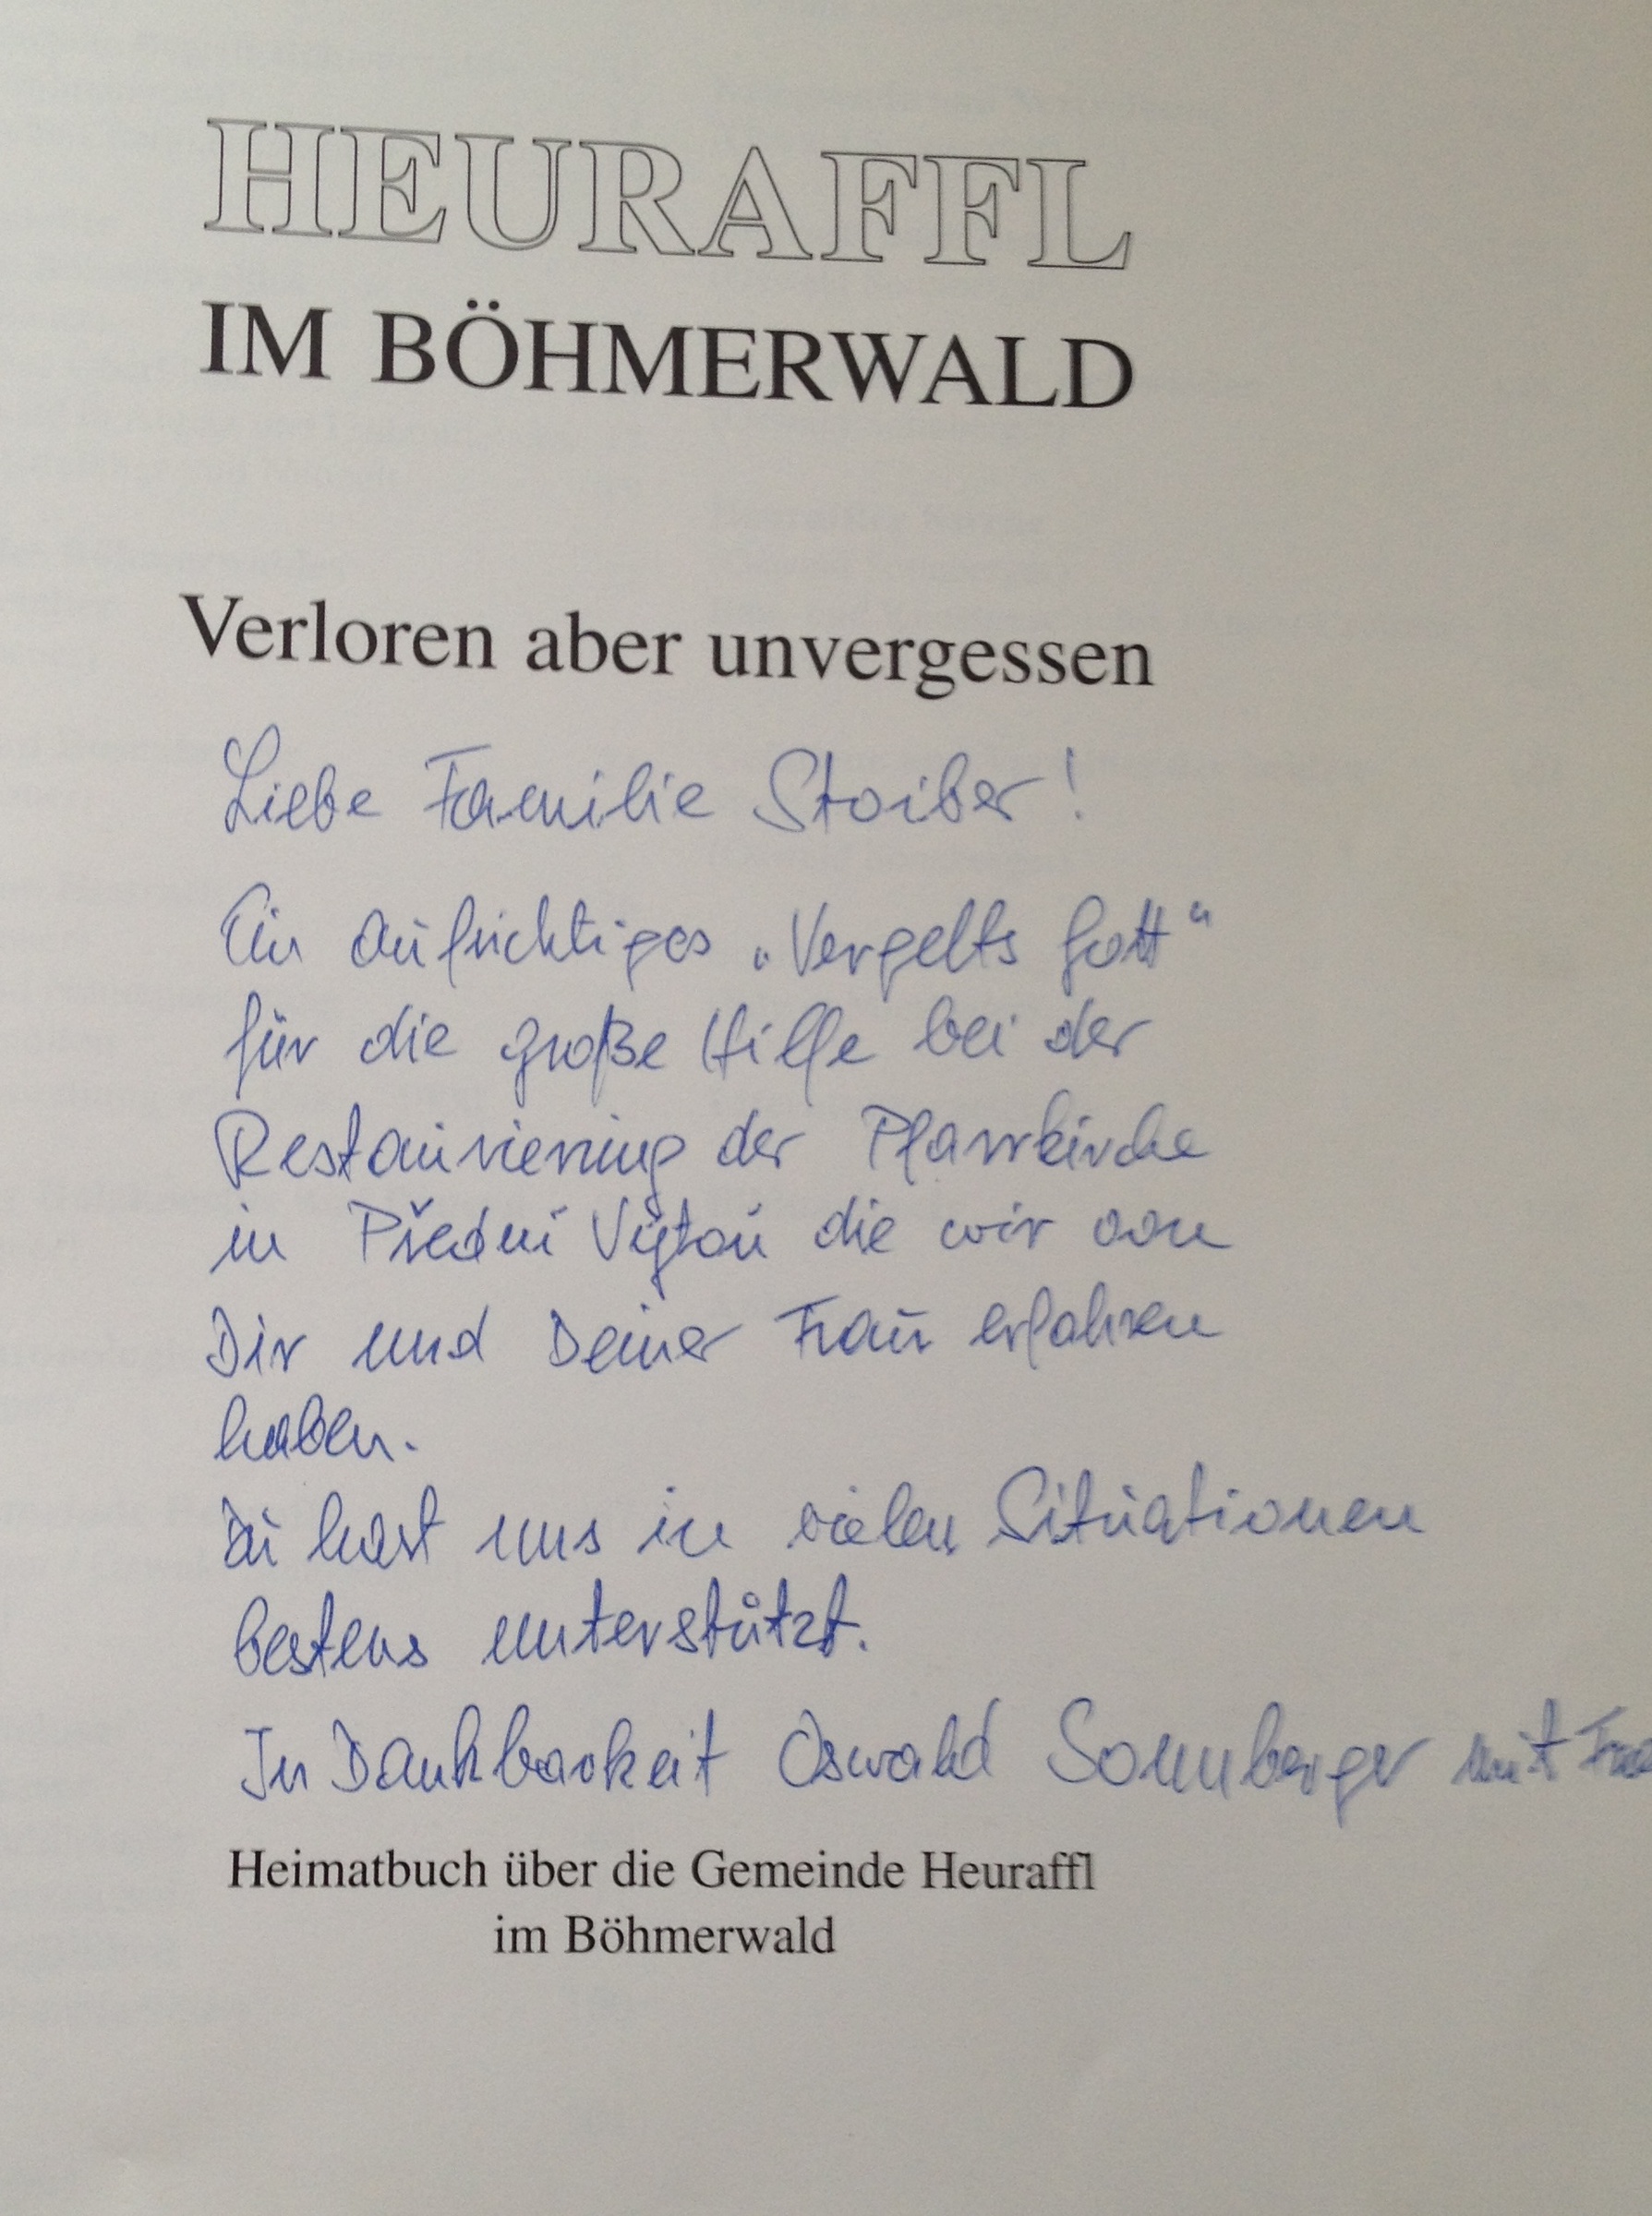 HEURAFFL
IM BÖHMERWALD
Verloren aber unvergessen
Liebe Familie Stoiber!
Ein aufrichtiges „Vergelts Gott“
für die große Hilfe bei der
Restaurierung der Pfarrkirche
in Přední Výtoň die wir von
Dir und Deiner Frau erfahren
haben.
Du hast uns in vielen Situationen
bestens unterstützt.
In Dankbarkeit Oswald Sonnberger mit
Heimatbuch über die Gemeinde Heuraffl
im Böhmerwald